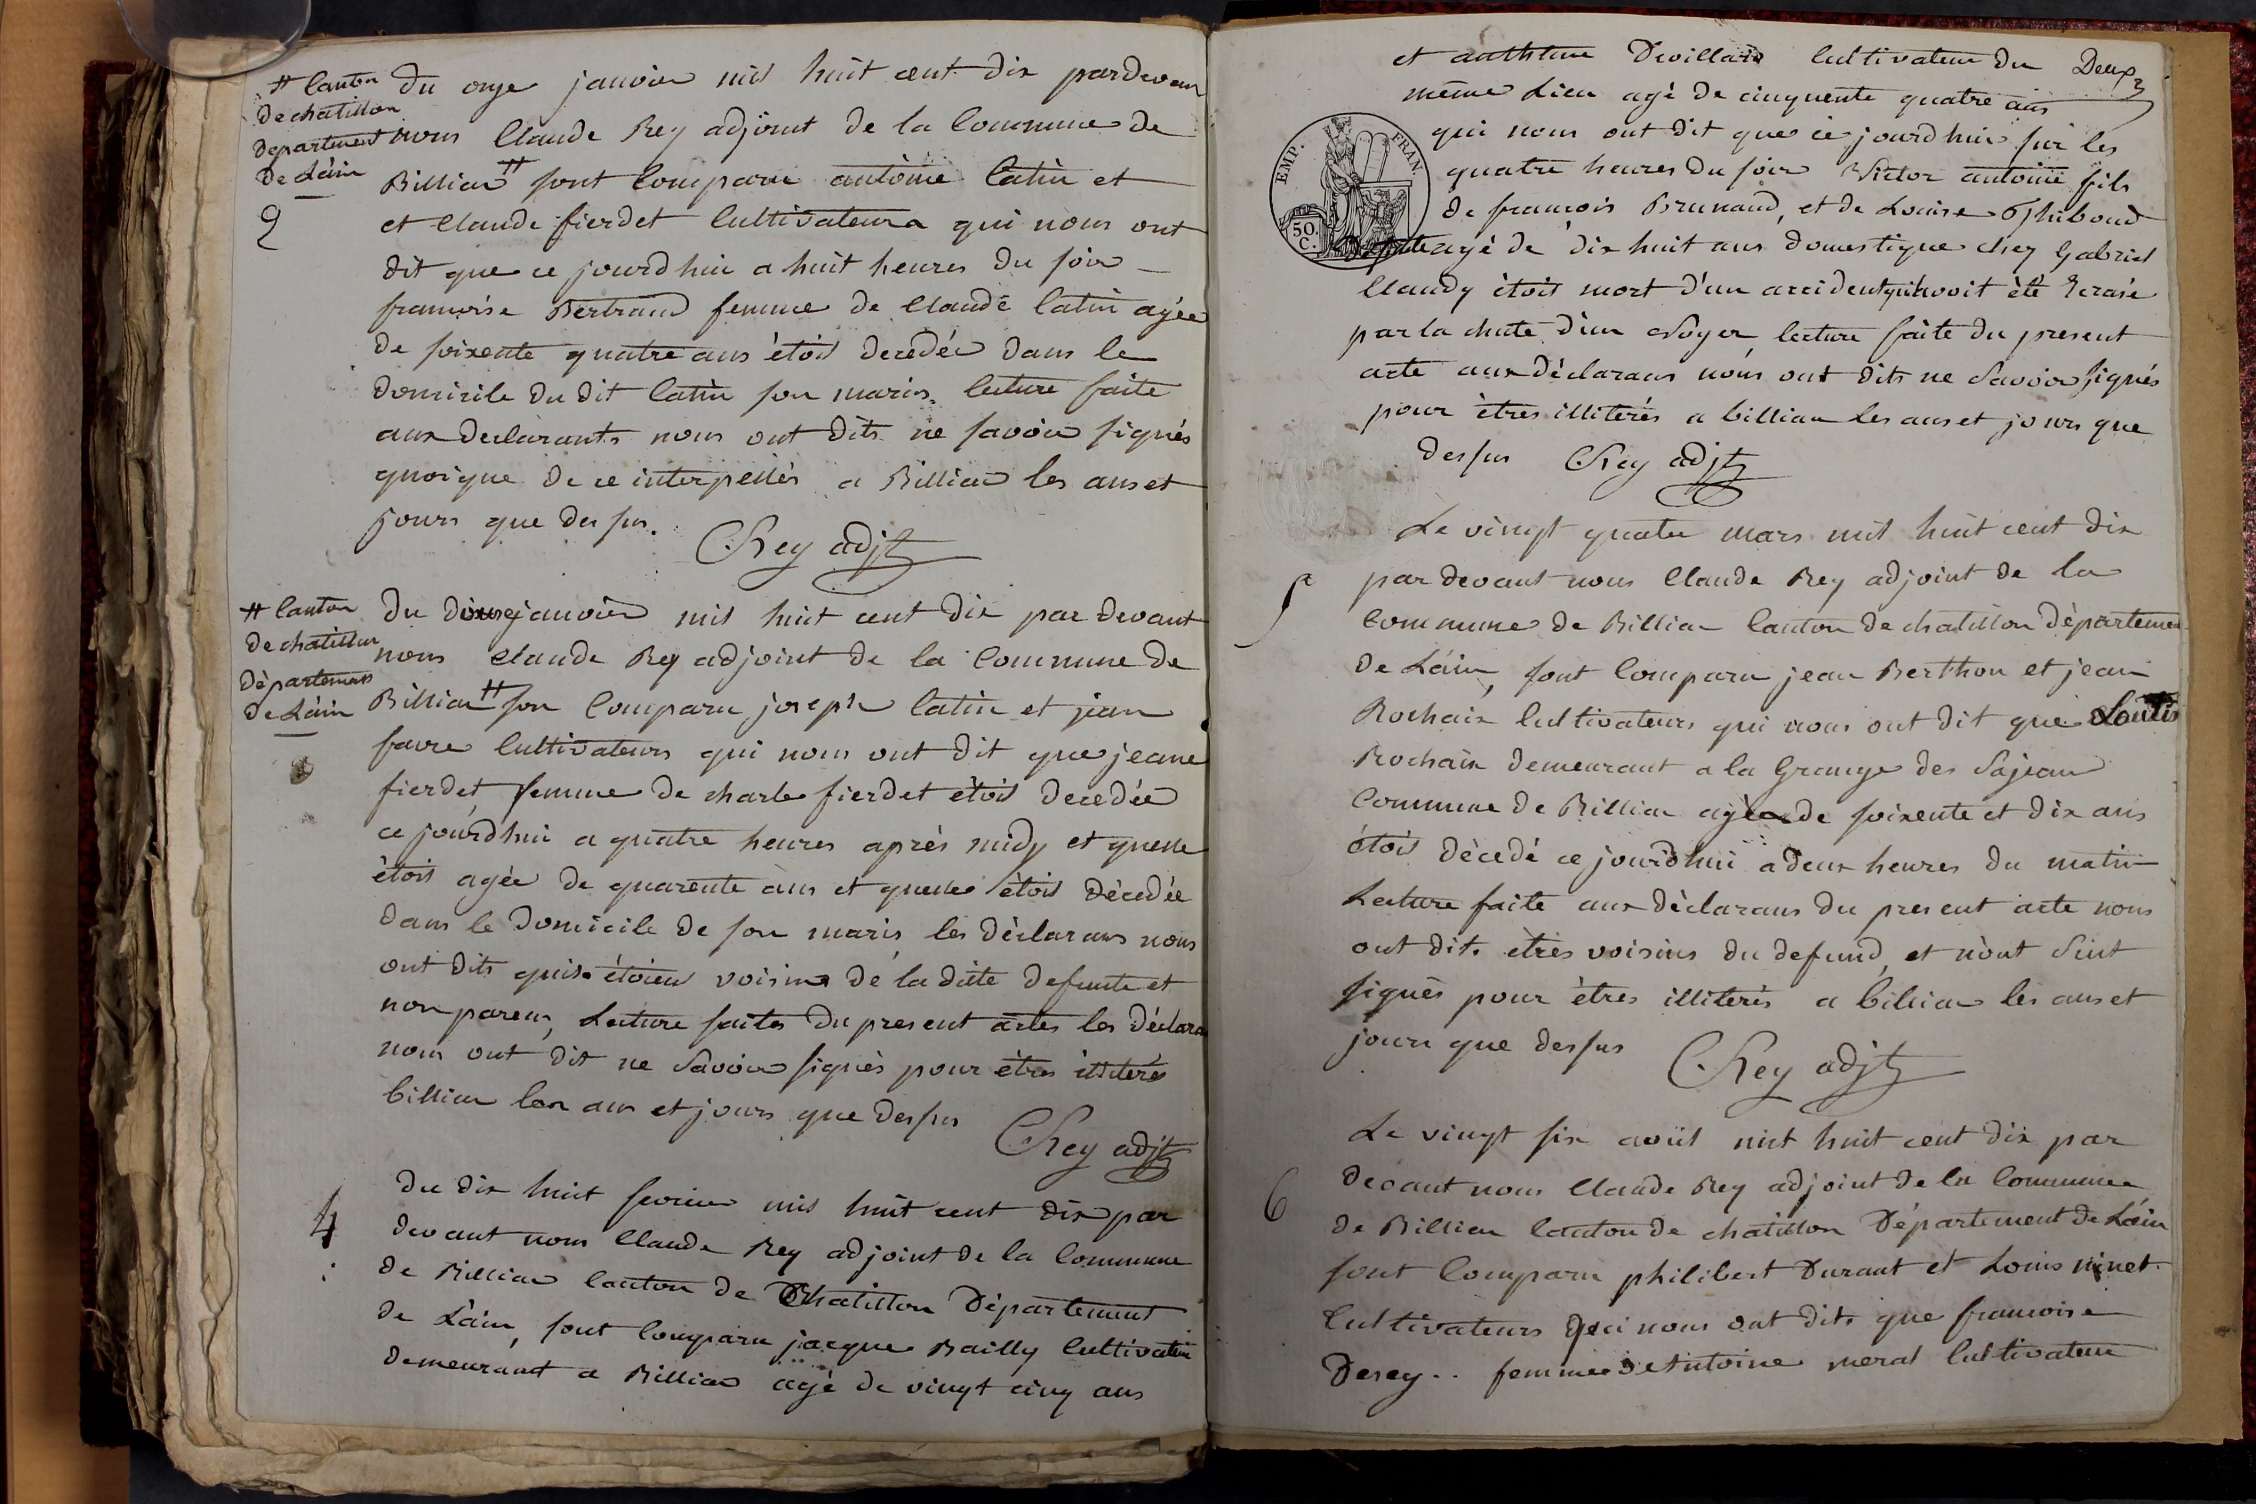 # Canton
de chatillon
departement
de Láin
2
du onze janvier mil huit cent dix pardevan
nous Claude Rey adjoint de la Commune de
Billiat # sont Comparu antoine Catin et
et Claude fierdet Cultivateurs qui nous ont
dit que ce jourdhui a huit heures du soir
francoise Bertrand femme de Claude Catin agée
de soixente quatre ans étoit decedée dans le
domicile du dit Catin son maris. lecture faite
aux declarants nous ont dits ne savoir signés
quoique de ce interpellés a Billiat les ans et
jours que dessus.
CRey adjt
# Canton
de chatillon
département
de Láin
du douze janvier mil huit cent dix par devant
nous Claude Rey adjoint de la Commune de
Billiat # son Comparu joseph Catin et jean
favre Cultivateurs qui nous ont dit que jeanne
fierdet, femme de charle fierdet étoit decedée
ce jourdhui a quatre heures après midy et quelle
étoit agée de quarente ans et quelle étoit décedée
dans le domicile de son maris, les déclarans nous
ont dits quils étoient voisins de la dite defunte et
non parens, Lecture faites du present actes les déclara
nous ont dit ne savoir signés pour étres illiterés
billiat les ans et jours que dessus
CRey adjt
4
du dix huit fevrier mil huit cent dix par
devant nous Claude Rey adjoint de la Commune
de Billiat Canton de Chatillon Département
de Láin, sont Comparu jacque Bailly Cultivateur
demeurant a Billiat agé de vingt cinq ans
Deux
et anthelme Devillard Cultivateur du
même Lieu agé de cinquente quatre ans
qui nous ont dit que ce jourdhui sur les
quatre heures du soir Victor antoine fils
de francois Brunand, et de Louise Thiboud
agé de dix huit ans domestique chez Gabriel
Claudy étoit mort d'un accident quil avoit été Ecrasé
par la chute d'un Noyer, lecture faite du present
acte aux déclarans nous ont dits ne savoir signés
pour étres illiterés a billiat les ans et jours que
dessus CRey adjt
EMP. FRAN.
50.
C.
5
Le vingt quatre mars mil huit cent dix
par devant nous Claude Rey adjoint de la
Commune de Billiat Canton de chatillon Départemen
de Láin, sont Comparu jean Berthon et jean
Rochaix Cultivateurs qui nous ont dit que Louis
Rochaix demeurant a la Grange des Sajean
Commune de Billiat agé de soixente et dix ans
étoit décedé ce jourdhui a deux heures du matin
Lecture faite aux déclarans du present acte nous
ont dits etres voisins du defund, et n'ont Sint
signés pour étres illiterés a billiat les ans et
jours que dessus
CRey adjt
6
Le vingt six avril mil huit cent dix par
devant nous Claude Rey adjoint de la Commune
de Billiat Canton de chatillon Département de Láin
sont Comparu philibert Durant et Louis ninet
Cultivateurs qui nous ont dits que francoise
Derey.. femme de Antoine meral Cultivateur